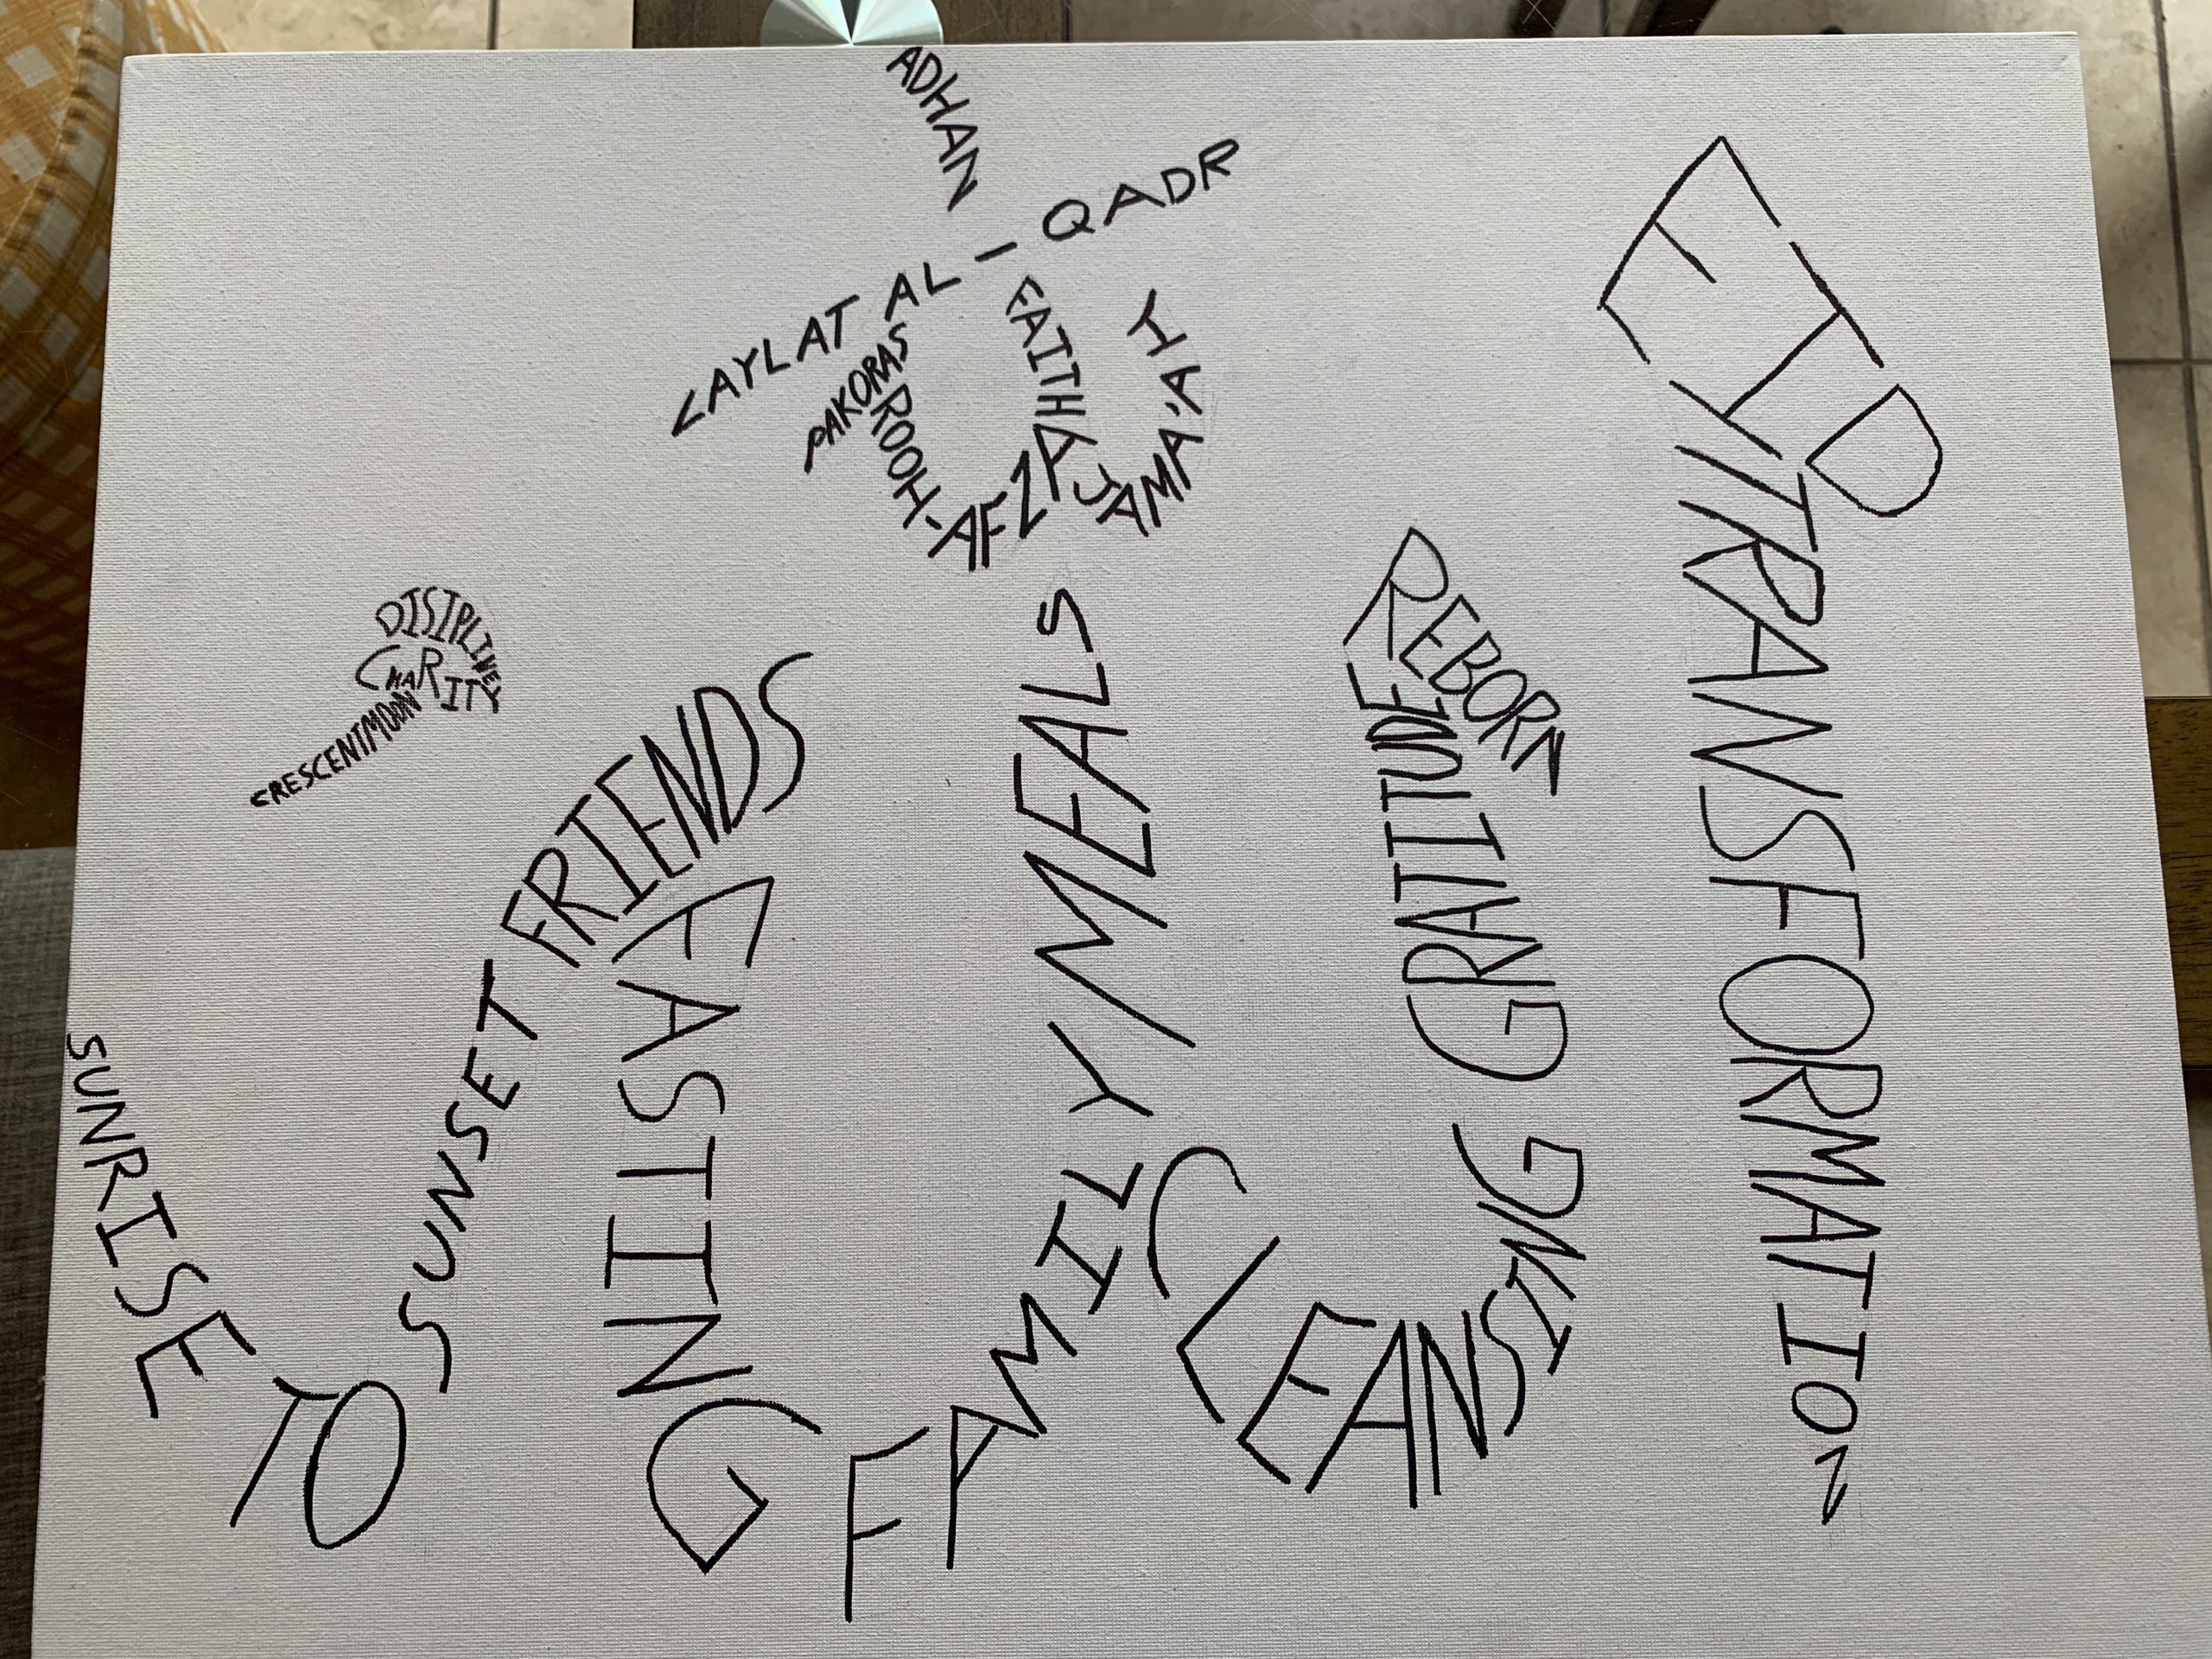 ADHAN
LAYLAT AL - QADR
PAKORAS
ROOH-AFZA
FAITH
JAMA'AH
EID
TRANSFORMATION
REBORN
GRATITUDE
DISIPLINE
CHARITY
CRESCENTMOON
FRIENDS
SUNRISE TO SUNSET
FASTING
FAMILY MEALS
CLEANSING